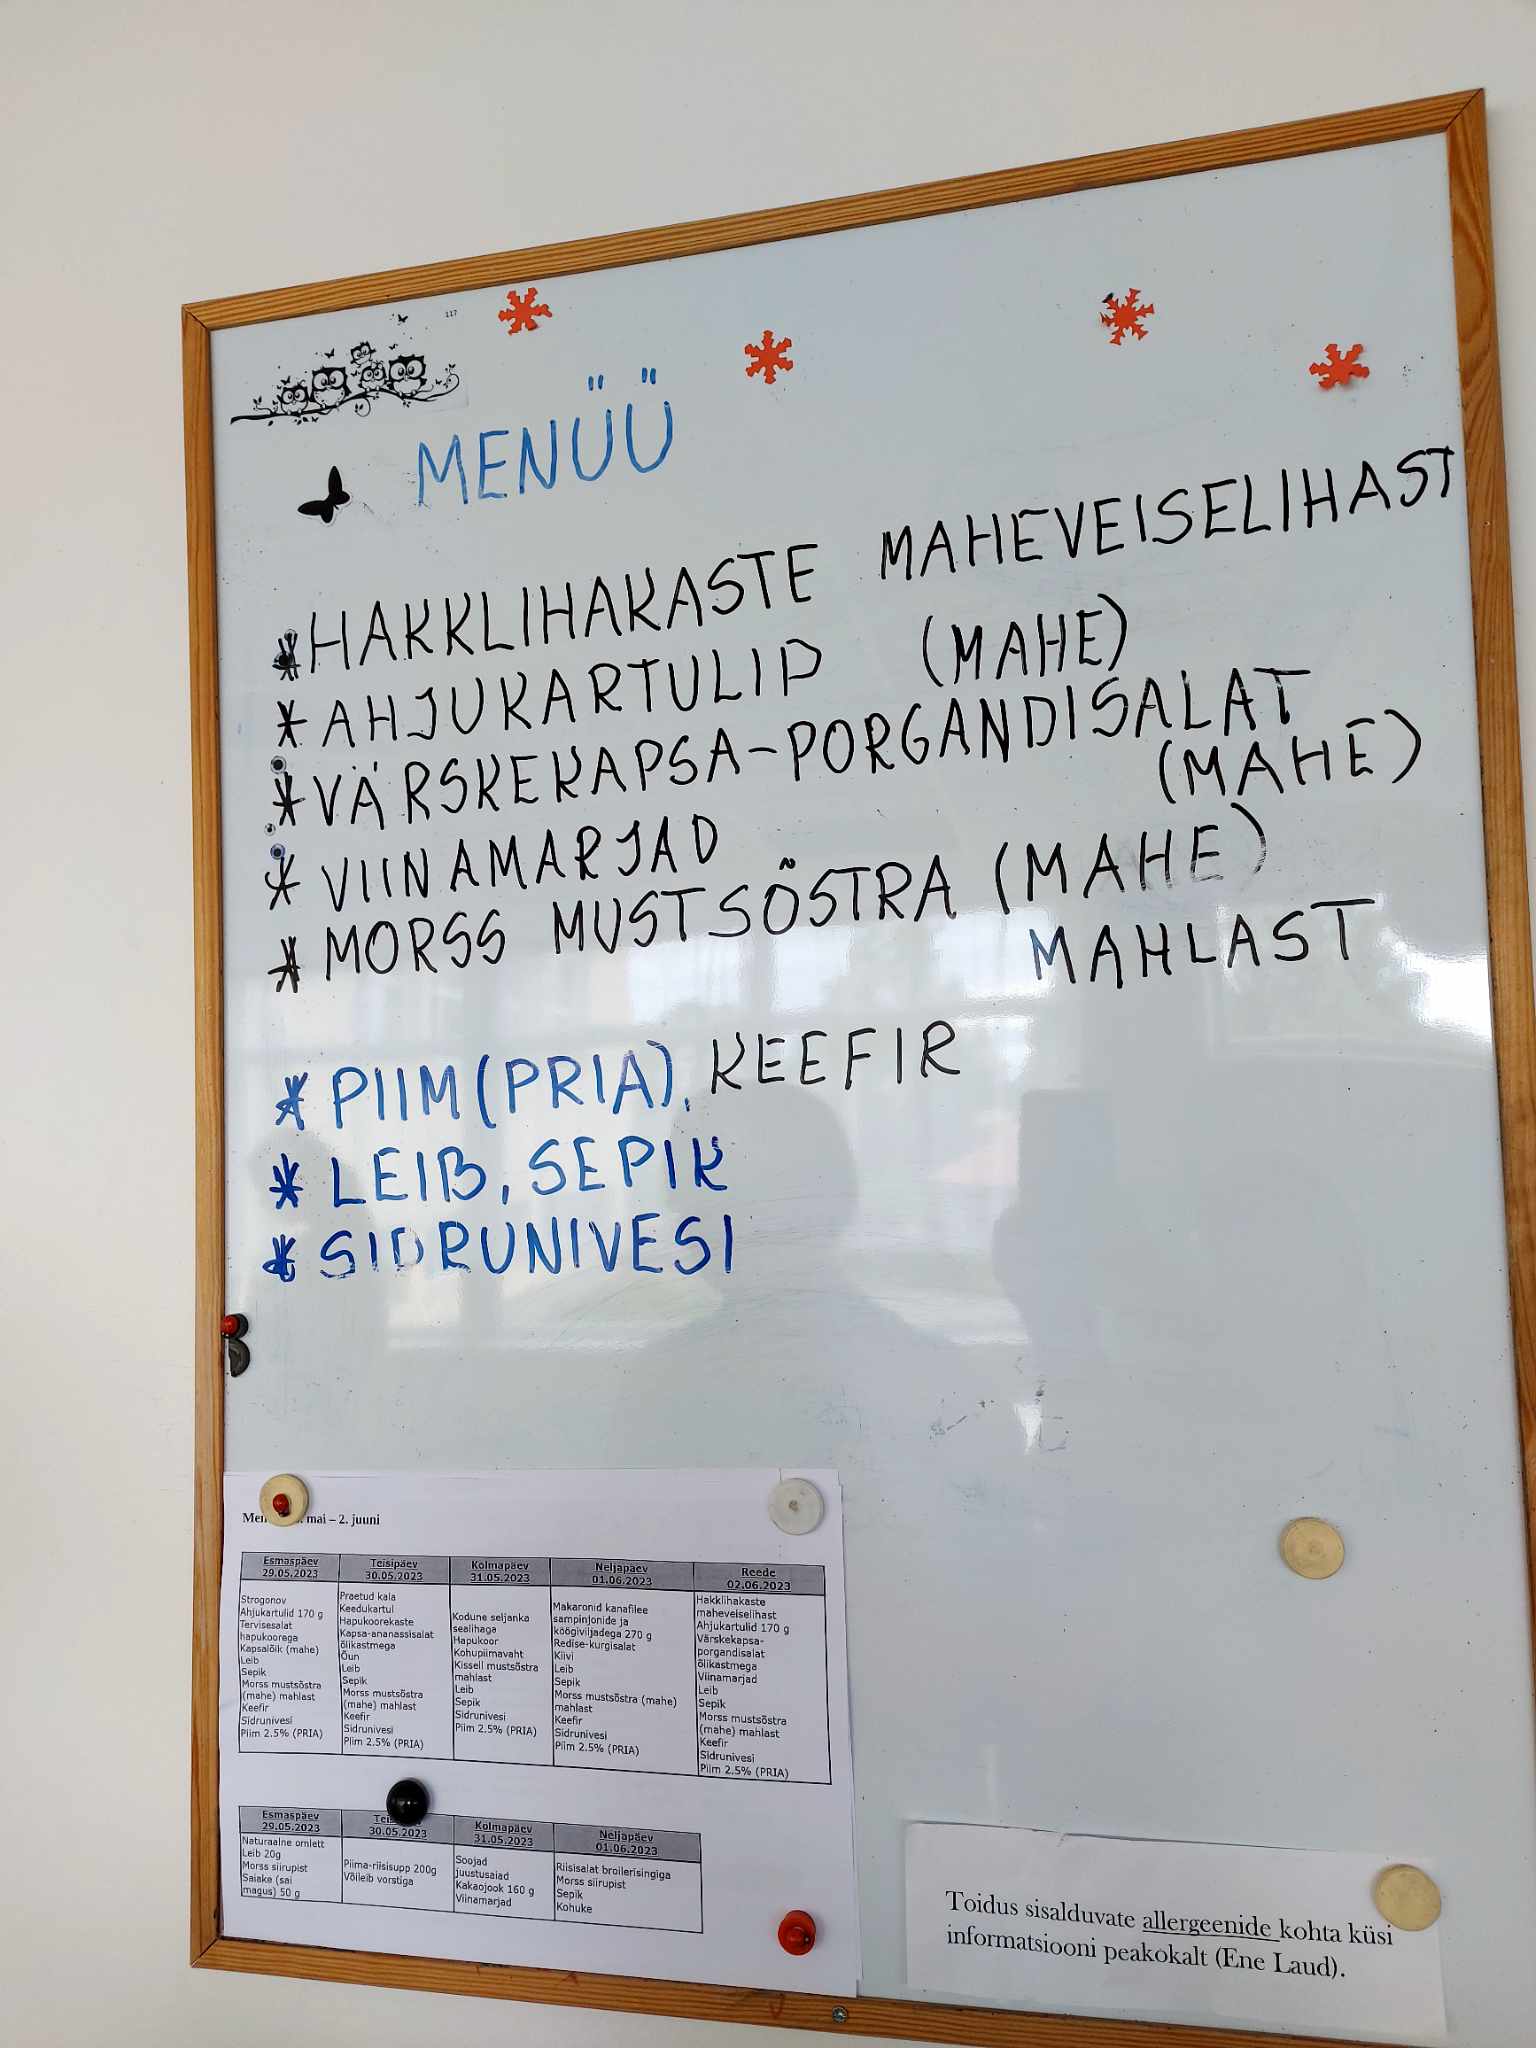 117
MENÜÜ
* HAKKLIHAKASTE MAHEVEISELIHAST
* AHJUKARTULID (MAHE)
* VÄRSKEKAPSA-PORGANDISALAT
(MAHE)
* VIINAMARJAD
* MORSS MUSTSÕSTRA (MAHE)
MAHLAST
* PIIM (PRIA), KEEFIR
* LEIB, SEPIK
* SIDRUNIVESI
mai – 2. juuni
Esmaspäev
29.05.2023
Strogonov
Ahjukartulid 170 g
Tervisesalat
hapukoorega
Kapsalõik (mahe)
Leib
Sepik
Morss mustsõstra
(mahe) mahlast
Keefir
Sidrunivesi
Piim 2.5% (PRIA)
Teisipäev
30.05.2023
Praetud kala
Keedukartul
Hapukoorekaste
Kapsa-ananassisalat
õlikastmega
Õun
Leib
Sepik
Morss mustsõstra
(mahe) mahlast
Keefir
Sidrunivesi
Piim 2.5% (PRIA)
Kolmapäev
31.05.2023
Kodune seljanka
sealihaga
Hapukoor
Kohupiimavaht
Kissell mustsõstra
mahlast
Leib
Sepik
Sidrunivesi
Piim 2.5% (PRIA)
Neljapäev
01.06.2023
Makaronid kanafilee
sampinjonide ja
köögiviljadega 270 g
Redise-kurgisalat
Kiivi
Leib
Sepik
Morss mustsõstra (mahe)
mahlast
Keefir
Sidrunivesi
Piim 2.5% (PRIA)
Reede
02.06.2023
Hakklihakaste
maheveiselihast
Ahjukartulid 170 g
Värskekapsa-
porgandisalat
õlikastmega
Viinamarjad
Leib
Sepik
Morss mustsõstra
(mahe) mahlast
Keefir
Sidrunivesi
Piim 2.5% (PRIA)
Esmaspäev
29.05.2023
Naturaalne omlett
Leib 20g
Morss siirupist
Saiake (sai
magus) 50 g
30.05.2023
Piima-riisisupp 200g
Võileib vorstiga
Kolmapäev
31.05.2023
Soojad
juustusaiad
Kakaojook 160 g
Viinamarjad
Neljapäev
01.06.2023
Riisisalat broilerisingiga
Morss siirupist
Sepik
Kohuke
Toidus sisalduvate allergeenide kohta küsi
informatsiooni peakokalt (Ene Laud).